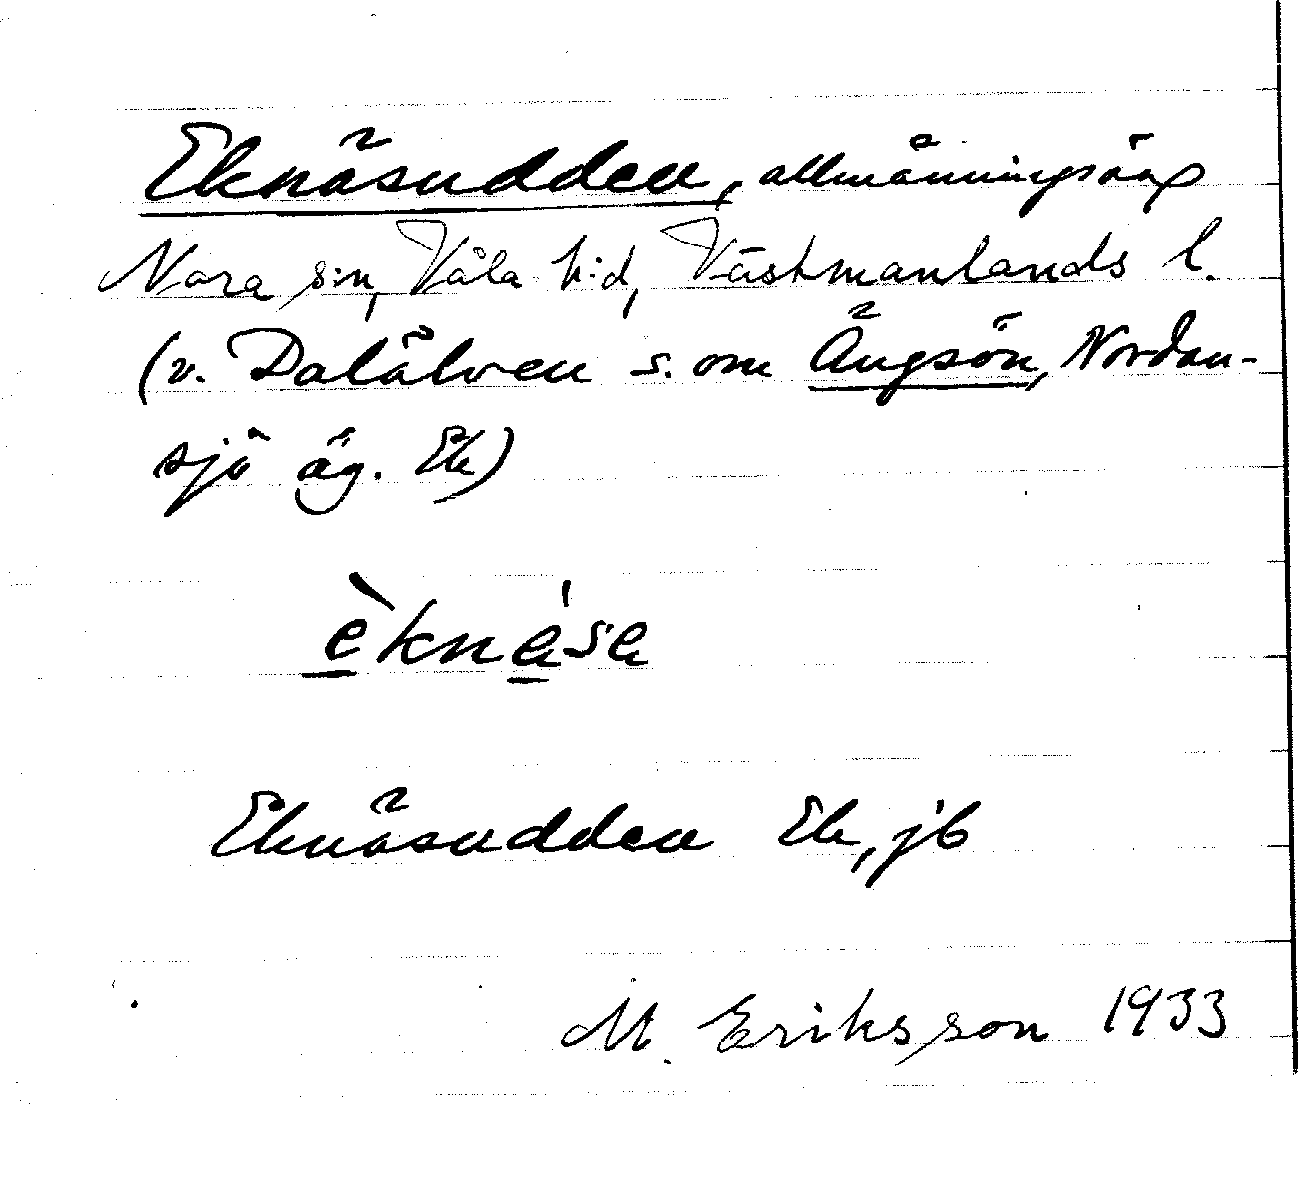 Eknäsudden, allmänningsäng
Nora s:n, Våla h:d, Västmanlands l.
(v. Dalälven s. om Ängsön, Nordan-
sjö äg. Ek)
èknáse
Eknäsudden Ek, jb
M. Eriksson 1933